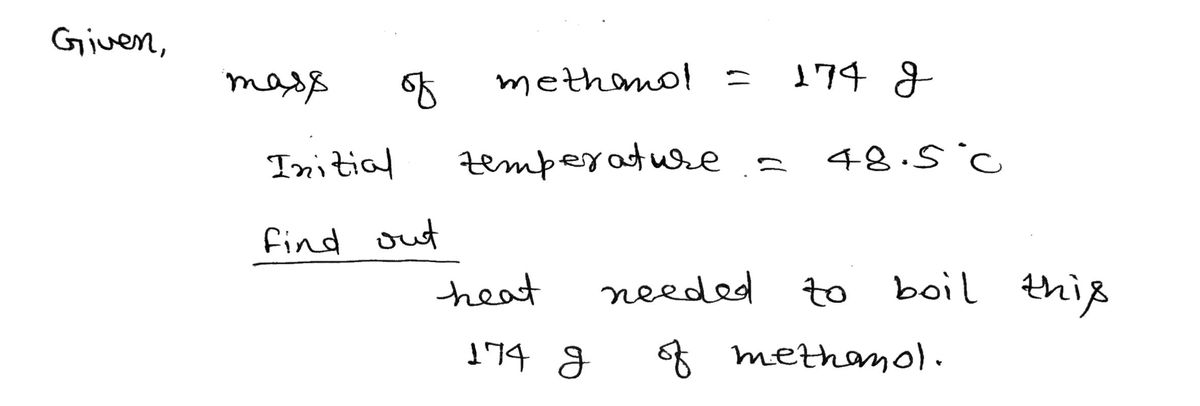 Given,
mass of methanol = 174 g
Initial temperature = 48.5 °C
find out
heat needed to boil this
174 g of methanol.